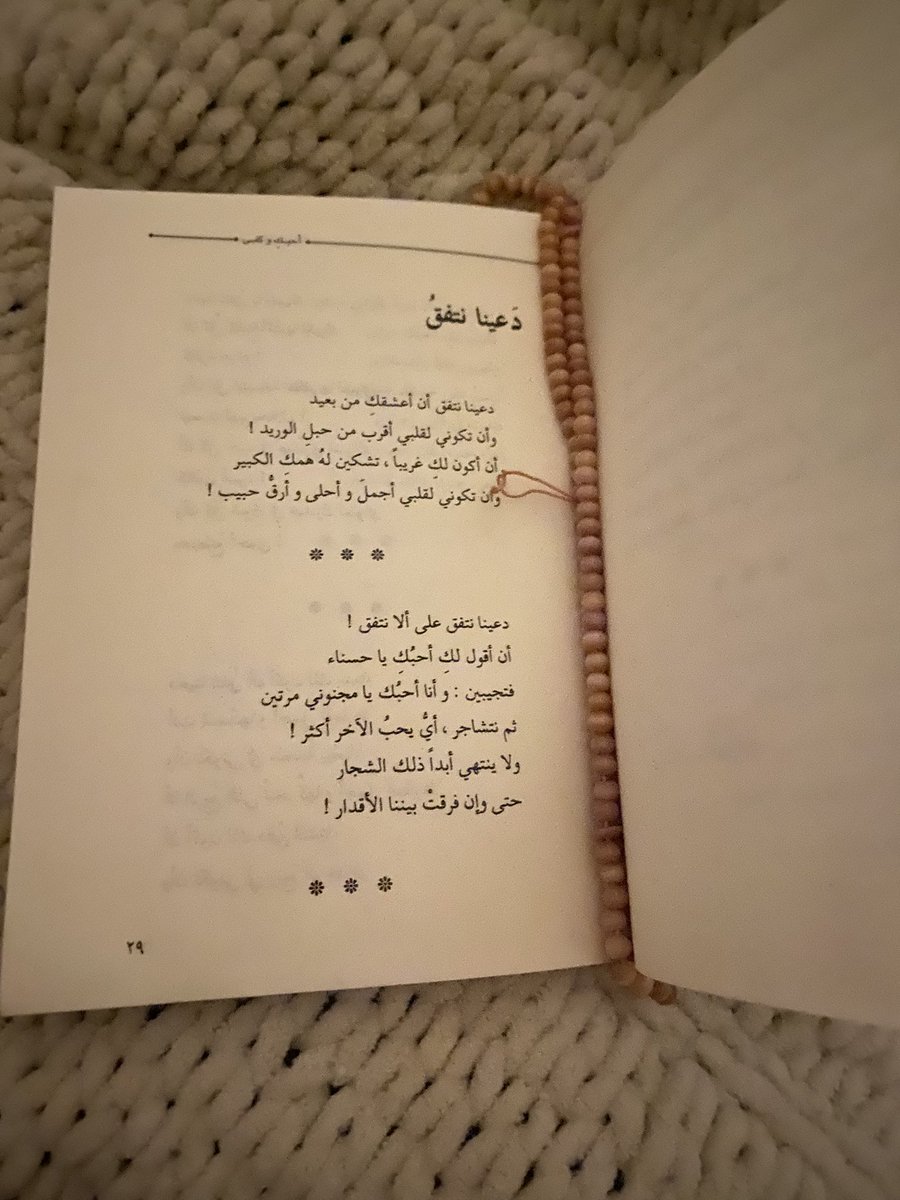 أحبك وكفى
دَعينا نتفقُ
دعينا نتفق أن أعشقكِ من بعيد
وأن تكوني لقلبي أقرب من حبلِ الوريد !
أن أكون لكِ غريباً ، تشكين لهُ همكِ الكبير
وأن تكوني لقلبي أجملَ و أحلى و أرقُّ حبيب !
* * *
دعينا نتفق على ألا نتفق !
أن أقول لكِ أحبُكِ يا حسناء
فتجيبين : و أنا أحبُك يا مجنوني مرتين
ثم نتشاجر ، أيُّ يحبُ الآخر أكثر !
ولا ينتهي أبداً ذلك الشجار
حتى وإن فرقتْ بيننا الأقدار !
* * *
٢٩